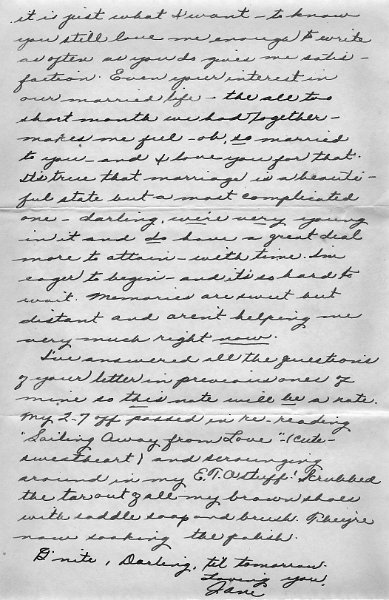 it is just what I want - to know
you still love me enough to write
as often as you do gives me satis-
faction. Even your interest in
our married life - the all too
short month we had together -
makes me feel - oh, so married
to you - and I love you for that.
It's true that marriage is a beauti-
ful state but a most complicated
one - darling, we're very young
in it and do have a great deal
more to attain - with time. I'm
eager to begin - and it's so hard to
wait. Memories are sweet but
distant and aren't helping me
very much right now.
I've answered all the questions
of your letter in previous ones of
mine so this note will be a note.
My 2-7 off passed in re-reading
"Sailing Away from Love" - (cute -
sweetheart) and scrounging
around in my E.T.O. stuff. I rubbed
the tar out of all my brown shoes
with saddle soap and brush. They're
now soaking the polish.
G'nite, Darling, 'til tomorrow.
Loving you,
Jane